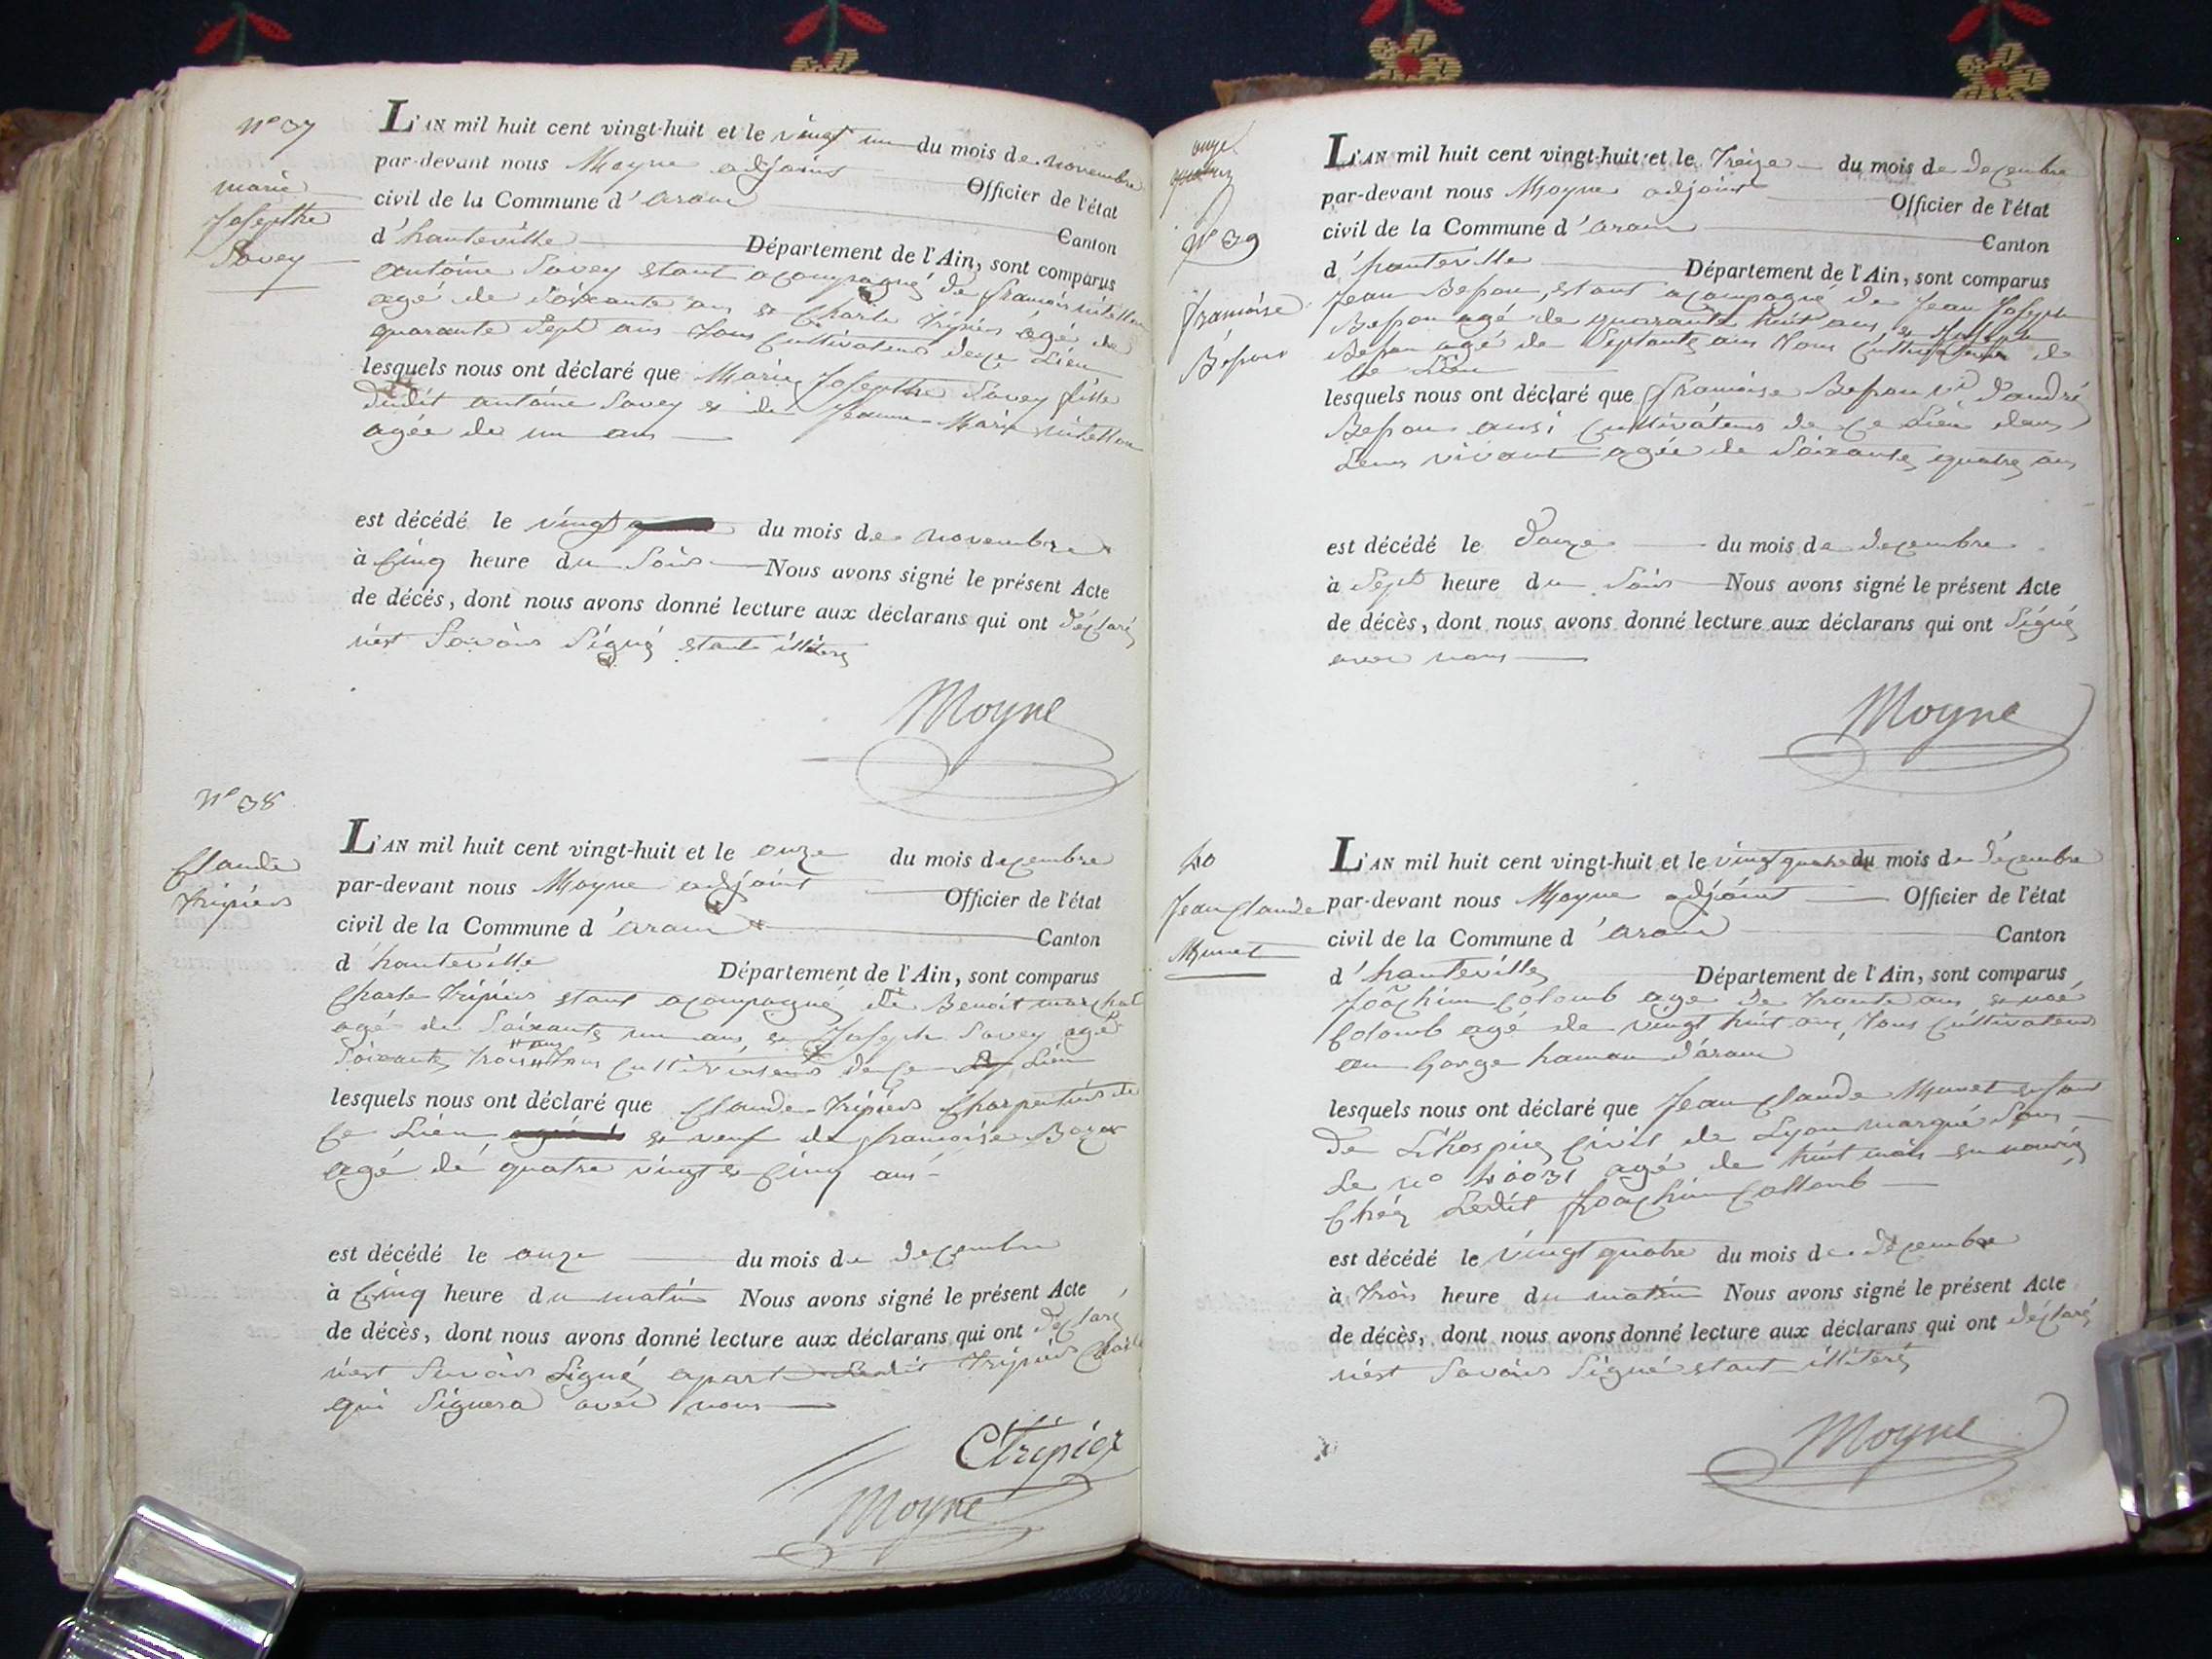 N° 37
marie
Josepthe
Savey
L'AN mil huit cent vingt-huit et le vingt un du mois de novembre
par-devant nous Moyne adjoint Officier de l'état
civil de la Commune d'aranc Canton
d'hauteville Département de l'Ain, sont comparus
antoine Savey estant acompagné de francois
agé de soixante ans et Charle Tripier agé de
quarante sept ans tous Cultivateurs de ce Lieu
lesquels nous ont déclaré que Marie Josepthe Savey fille
dudit antoine Savey et de Jeanne Marie
agée de un an
est décédé le vingt du mois de novembre
à Cinq heure du Soir Nous avons signé le présent Acte
de décés, dont nous avons donné lecture aux déclarans qui ont déclaré
n'est Savoir Signé estant illiteré
Moyne
N° 38
Claude
Tripier
L'AN mil huit cent vingt-huit et le onze du mois decembre
par-devant nous Moyne adjoint Officier de l'état
civil de la Commune d'aranc Canton
d'hauteville Département de l'Ain, sont comparus
Charle Tripier estant acompagné de Benoit marchal
agé de Soixante un ans, et Joseph Savey agé
Soixante trois ans tous Cultivateurs de ce Lieu
lesquels nous ont déclaré que Claude Tripier Charpentier de
Ce Lieu et veuf de francoise
agé de quatre vingt et Cinq ans
est décédé le onze du mois de decembre
à Cinq heure du matin Nous avons signé le présent Acte
de décès, dont nous avons donné lecture aux déclarans qui ont declaré
n'est Savoir Signé apart Ledit Tripier Charle
qui Signera avec nous
CTripier
Moyne
onze
N° 39
francoise
Besson
L'AN mil huit cent vingt-huit et le Treize du mois de decembre
par-devant nous Moyne adjoint Officier de l'état
civil de la Commune d'aranc Canton
d'hauteville Département de l'Ain, sont comparus
Jean Besson, estant acompagné de Jean Joseph
Besson agé de quarante huit ans, et Joseph
Besson agé de Septante ans tous Cultivateur de
ce Lieu
lesquels nous ont déclaré que francoise Besson Ve d'andré
Besson aussi Cultivateur de Ce Lieu dans
Leur vivant agée de Soixante quatre ans
est décédé le douze du mois de decembre
à Sept heure du Soir Nous avons signé le présent Acte
de décès, dont nous avons donné lecture aux déclarans qui ont Signé
avec nous
Moyne
40
Jean Claude
Munet
L'AN mil huit cent vingt-huit et le vingt quatre du mois de décembre
par-devant nous Moyne adjoint Officier de l'état
civil de la Commune d'aranc Canton
d'hauteville Département de l'Ain, sont comparus
Joachim Colomb age de trente ans, et noé
Colomb agé de vingt huit ans, tous Cultivateurs
au Gorge hamau d'aranc
lesquels nous ont déclaré que Jean Claude Munet enfant
de L'hospice Civil de Lyon marqué Sous
Le n° 40031 agé de huit mois en nouriç
Chéz Ledit Joachim Collomb
est décédé le vingt quatre du mois de décembre
à trois heure du matin Nous avons signé le présent Acte
de décès, dont nous avons donné lecture aux déclarans qui ont déclaré
n'est Savoir Signé estant illiteré
Moyne